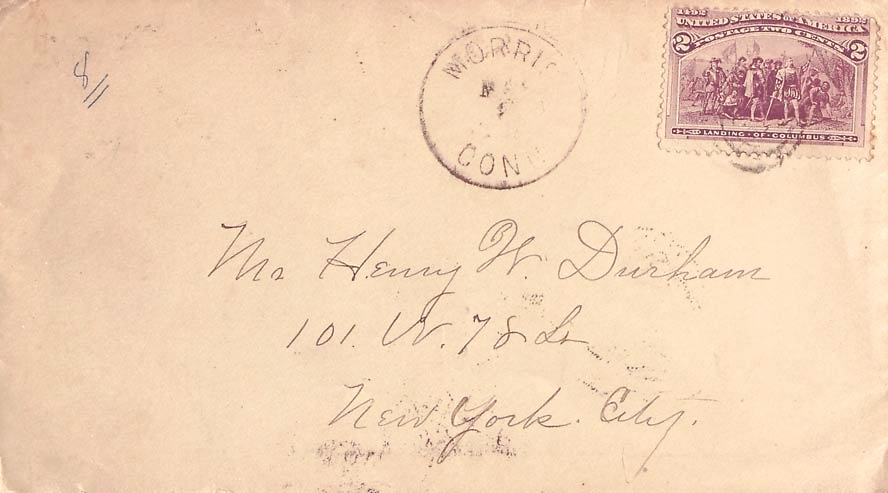 1492 1892
UNITED STATES OF AMERICA
POSTAGE TWO CENTS
2 2
LANDING · OF · COLUMBUS
MORRIS
CONN
8/1
Mr Henry W. Durham
101. W. 78 St
New York. City.